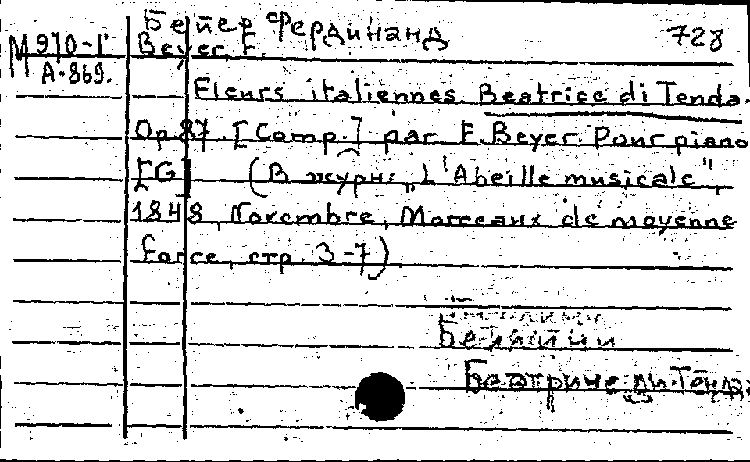 Бейер Фердинанд 728
М 970-Г Beyer, F.
А-869.
Fleurs italiennes. Beatrice di Tenda.
Op. 87. [Comp.] par F. Beyer. Pour piano
[G] (В журн: „L'Abeille musicale",
1848, Novembre, Morceaux de moyenne
force, стр. 3-7)
Беллини
Беатриче ди Тенда